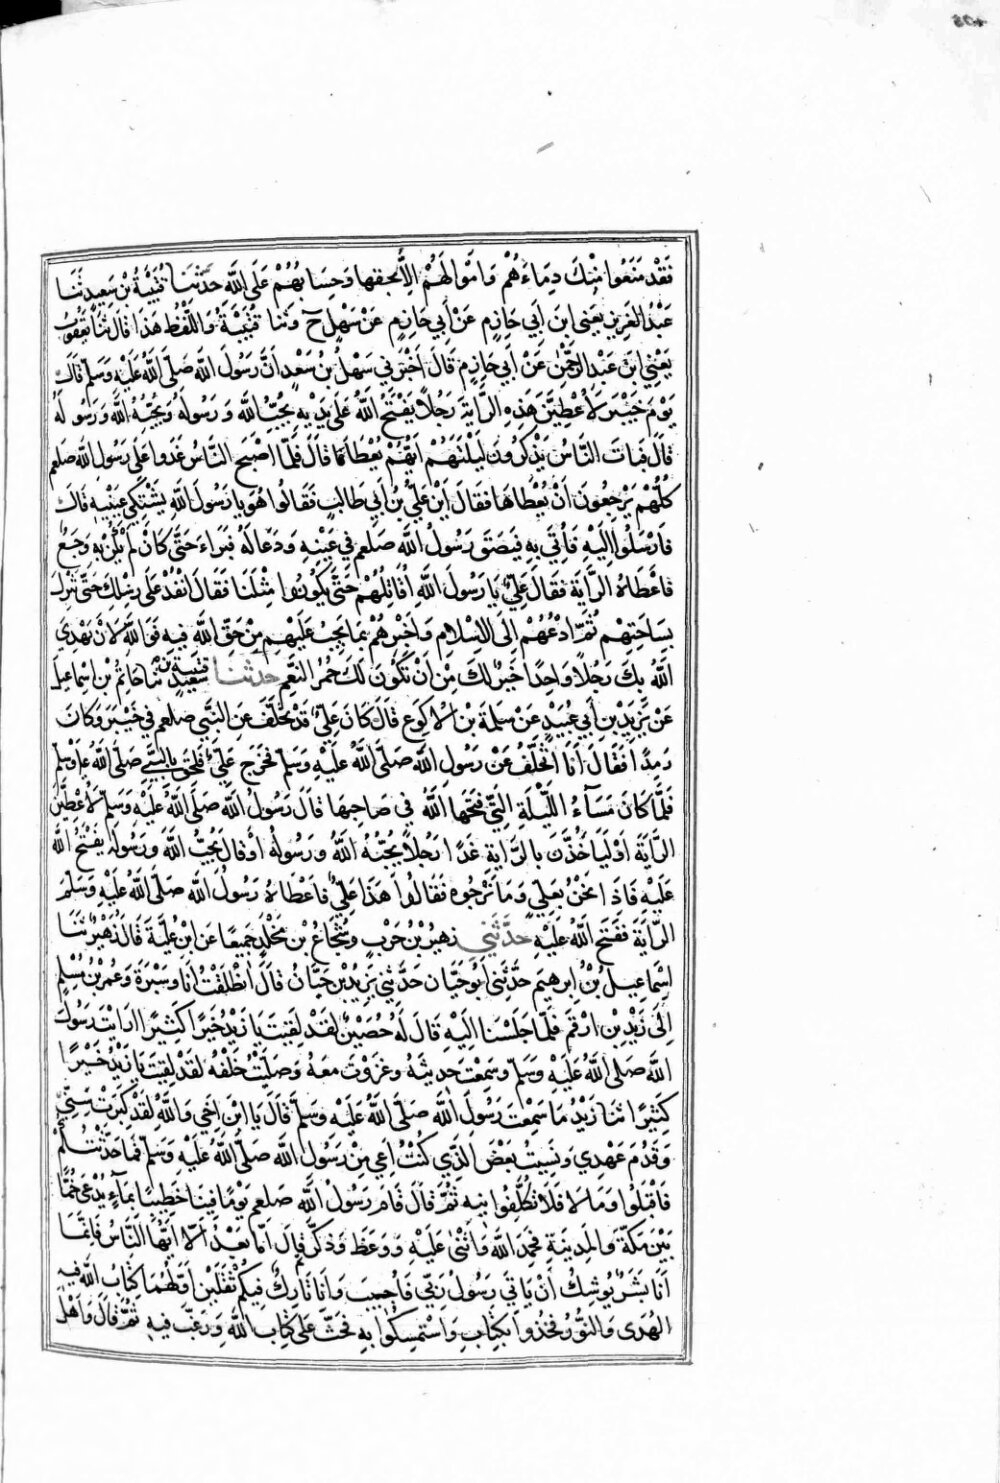 فَقَدْ مَنَعُوا مِنْكَ دِمَاءَهُمْ وَامْوَالَهُمْ اِلَّا بِحَقِّهَا وَحِسَابُهُمْ عَلَى اللَّهِ حَدَّثَنَا قُتَيْبَةُ بْنُ سَعِيدٍ ثَنَا
عَبْدُ الْعَزِيزِ يَعْنِي ابْنَ اَبِي حَازِمٍ عَنْ اَبِي حَازِمٍ عَنْ سَهْلٍ ح وَثَنَا قُتَيْبَةُ وَاللَّفْظُ هَذَا قَالَ ثَنَا يَعْقُوبُ
يَعْنِي ابْنَ عَبْدِ الرَّحْمٰنِ عَنْ اَبِي حَازِمٍ قَالَ اَخْبَرَنِي سَهْلُ بْنُ سَعْدٍ اَنَّ رَسُولَ اللَّهِ صَلَّى اللَّهُ عَلَيْهِ وَسَلَّمَ قَالَ
يَوْمَ خَيْبَرَ لَاُعْطِيَنَّ هَذِهِ الرَّايَةَ رَجُلًا يَفْتَحُ اللَّهُ عَلَى يَدَيْهِ يُحِبُّ اللَّهَ وَرَسُولَهُ وَيُحِبُّهُ اللَّهُ وَرَسُولُهُ
قَالَ فَبَاتَ النَّاسُ يَذْكُرُونَ لَيْلَتَهُمْ اَيُّهُمْ يُعْطَاهَا قَالَ فَلَمَّا اَصْبَحَ النَّاسُ غَدَوْا عَلَى رَسُولِ اللَّهِ صلعم
كُلُّهُمْ يَرْجُعونَ اَنْ يُعْطَاهَا فَقَالَ اَيْنَ عَلِيُّ بْنُ اَبِي طَالِبٍ فَقَالُوا هُوَ يَا رَسُولَ اللَّهِ يَشْتَكِي عَيْنَيْهِ قَالَ
فَارْسَلُوا اِلَيْهِ فَاُتِيَ بِهِ فَبَصَقَ رَسُولُ اللَّهِ صلعم فِي عَيْنَيْهِ وَدَعَا لَهُ فَبَرَاءَ حَتَّى كَانْ لَمْ يَكُنْ بِهِ وَجَعٌ
فَاَعْطَاهُ الرَّايَةَ فَقَالَ عَلِيٌّ يَا رَسُولَ اللَّهِ اُقَاتِلُهُمْ حَتَّى يَكُونُوا مِثْلَنَا فَقَالَ انْفُذْ عَلَى رِسْلِكَ حَتَّى تَنْزِلَ
بِسَاحَتِهِمْ ثُمَّ ادْعُهُمْ اِلَى الْاِسْلَامِ وَاَخْبِرْهُمْ بِمَا يَجِبُ عَلَيْهِمْ مِنْ حَقِّ اللَّهِ فِيهِ فَوَاللَّهِ لَاَنْ يَهْدِيَ
اللَّهُ بِكَ رَجُلًا وَاحِدًا خَيْرٌ لَكَ مِنْ اَنْ تَكُونَ لَكَ حُمْرُ النَّعَمِ حَدَّثَنَا قُتَيْبَةُ بْنُ سَعِيدٍ ثَنَا حَاتِمُ بْنُ اِسْمَاعِيلَ
عَنْ يَزِيدَ بْنِ اَبِي عُبَيْدٍ عَنْ سَلَمَةَ بْنِ الْاَكْوَعِ قَالَ كَانَ عَلِيٌّ قَدْ تَخَلَّفَ عَنِ النَّبِيِّ صلعم فِي خَيْبَرَ وَكَانَ
رَمِدًا فَقَالَ اَنَا اَتَخَلَّفُ عَنْ رَسُولِ اللَّهِ صَلَّى اللَّهُ عَلَيْهِ وَسَلَّمَ فَخَرَجَ عَلِيٌّ فَلَحِقَ بِالنَّبِيِّ صَلَّى اللَّهُ عَلَيْهِ وَسَلَّمَ
فَلَمَّا كَانَ مَسَاءُ اللَّيْلَةِ الَّتِي فَتَحَهَا اللَّهُ فِي صَاحِبِهَا قَالَ رَسُولُ اللَّهِ صَلَّى اللَّهُ عَلَيْهِ وَسَلَّمَ لَاُعْطِيَنَّ
الرَّايَةَ اَوْ لَيَاْخُذَنَّ بِالرَّايَةِ غَدًا رَجُلًا يُحِبُّهُ اللَّهُ وَرَسُولُهُ اَوْ قَالَ يُحِبُّ اللَّهَ وَرَسُولَهُ يَفْتَحُ اللَّهُ
عَلَيْهِ فَاذَا نَحْنُ بِعَلِيٍّ وَمَا نَرْجُوهُ فَقَالُوا هَذَا عَلِيٌّ فَاَعْطَاهُ رَسُولُ اللَّهِ صَلَّى اللَّهُ عَلَيْهِ وَسَلَّمَ
الرَّايَةَ فَفَتَحَ اللَّهُ عَلَيْهِ حَدَّثَنِي زُهَيْرُ بْنُ حَرْبٍ وَشُجَاعُ بْنُ مَخْلَدٍ جَمِيعًا عَنِ ابْنِ عُلَيَّةَ قَالَ زُهَيْرٌ ثَنَا
اِسْمَاعِيلُ بْنُ اِبْرهِيمَ حَدَّثَنِي اَبُو حَيَّانَ حَدَّثَنِي يَزِيدُ بْنُ حَيَّانَ قَالَ انْطَلَقْتُ اَنَا وَسَبْرَةُ وَعُمَرُ بْنُ مُسْلِمٍ
اِلَى زَيْدِ بْنِ اَرْقَمَ فَلَمَّا جَلَسْنَا اِلَيْهِ قَالَ لَهُ حُصَيْنٌ لَقَدْ لَقِيتَ يَا زَيْدُ خَيْرًا كَثِيرًا رَاَيْتَ رَسُولَ
اللَّهِ صَلَّى اللَّهُ عَلَيْهِ وَسَلَّمَ وَسَمِعْتَ حَدِيثَهُ وَغَزَوْتَ مَعَهُ وَصَلَّيْتُ خَلْفَهُ لَقَدْ لَقِيتَ يَا زَيْدُ خَيْرًا
كَثِيرًا ثَنَا زَيْدُ مَا سَمِعْتَ رَسُولَ اللَّهِ صَلَّى اللَّهُ عَلَيْهِ وَسَلَّمَ قَالَ يَا ابْنَ اَخِي وَاللَّهِ لَقَدْ كَبِرَتْ سِنِّي
وَقَدُمَ عَهْدِي وَنَسِيتُ بَعْضَ الَّذِي كُنْتُ اَعِي مِنْ رَسُولِ اللَّهِ صَلَّى اللَّهُ عَلَيْهِ وَسَلَّمَ فَمَا حَدَّثْتُكُمْ
فَاقْبَلُوا وَمَا لَا فَلَا تُكَلِّفُوا فِيهِ ثُمَّ قَالَ قَامَ رَسُولُ اللَّهِ صلعم يَوْمًا فِينَا خَطِيبًا بِمَآءٍ يُدْعَى خُمًّا
بَيْنَ مَكَّةَ وَالْمَدِينَةِ فَحَمِدَ اللَّهَ وَاَثْنَى عَلَيْهِ وَوَعَظَ وَذَكَّرَ ثُمَّ قَالَ اَمَّا بَعْدُ اَلَا اَيُّهَا النَّاسُ فَاِنَّمَا
اَنَا بَشَرٌ يُوشِكُ اَنْ يَاتِيَ رَسُولُ رَبِّي فَاُجِيبَ وَاَنَا تَارِكٌ فِيكُمْ ثَقَلَيْنِ اَوَّلُهُمَا كِتَابُ اللَّهِ فِيهِ
الْهُدَى وَالنُّورُ فَخُذُوا بِكِتَابِ وَاسْتَمْسِكُوا بِهِ فَحَثَّ عَلَى كِتَابِ اللَّهِ وَرَغَّبَ فِيهِ ثُمَّ قَالَ وَاَهْلُ